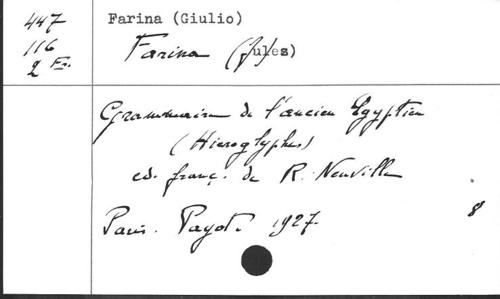 447
116
2 Ex.
Farina (Giulio)
Farina (Jules)
Grammaire de l'ancien Egyptien
(Hieroglyphes)
ed. franç. de R. Neuville
Paris. Payot. 1927.
8